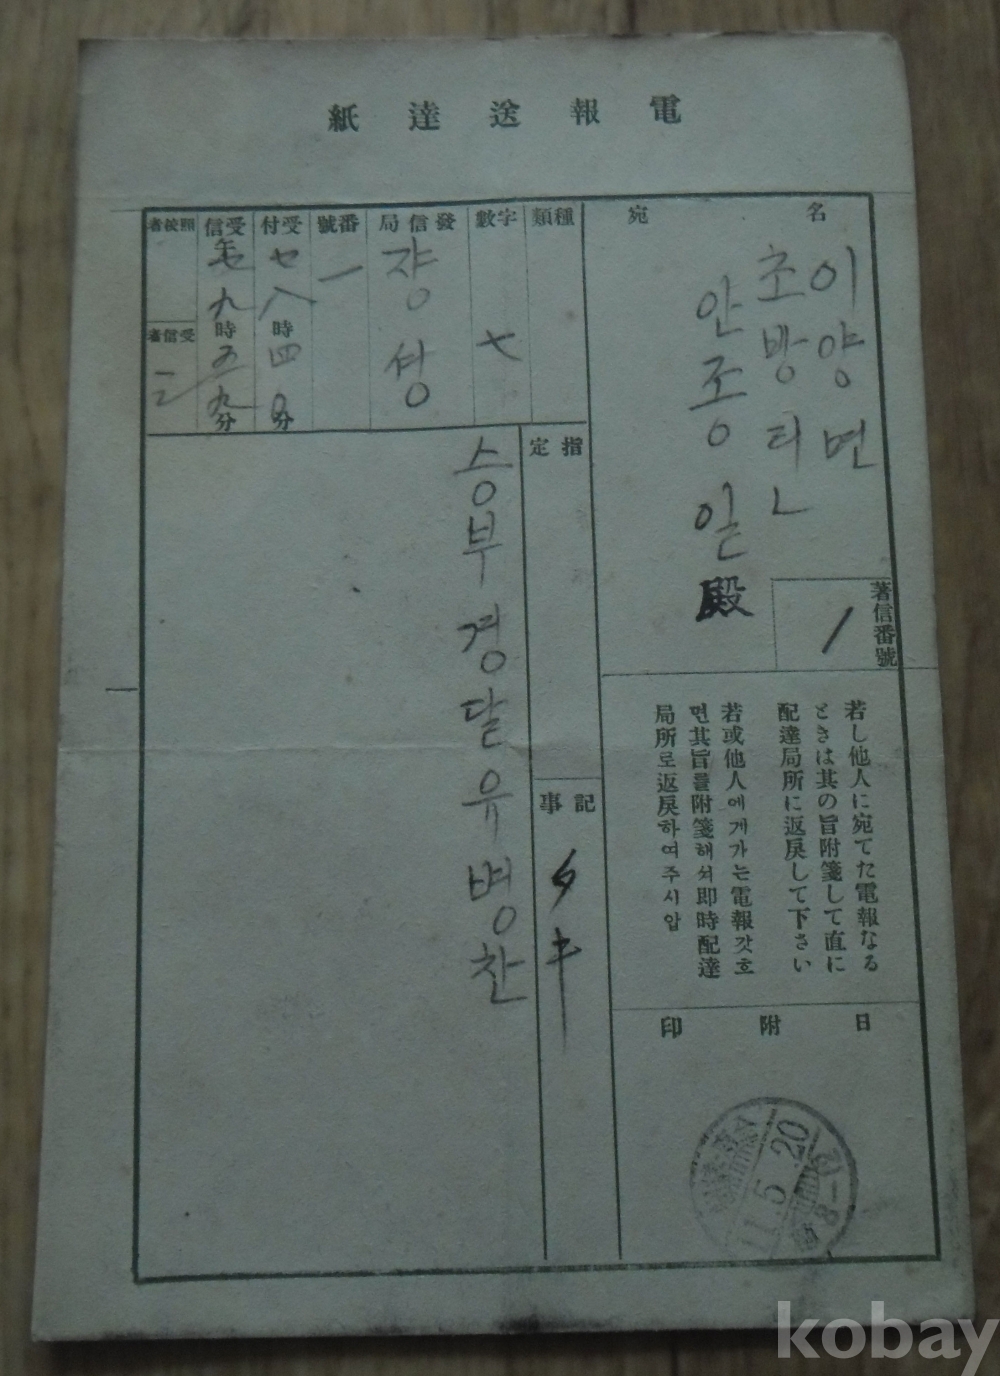 電報送達紙
宛名
이양면
초방리ㄴ
안종일殿
著信番號
1
若し他人に宛てた電報なる
ときは其の旨附箋して直に
配達局所に返戻して下さい
若或他人에게가는電報갓흐
면其旨를附箋해셔即時配達
局所로返戻하여주시압
日附印
11.5.20
種類
字數
七
發信局
쟝셩
番號
一
受付
七
八時四〇分
受信
午七
九時五九分
照校者
受信者
指定
記事
タキ
승부경달유병찬
kobay